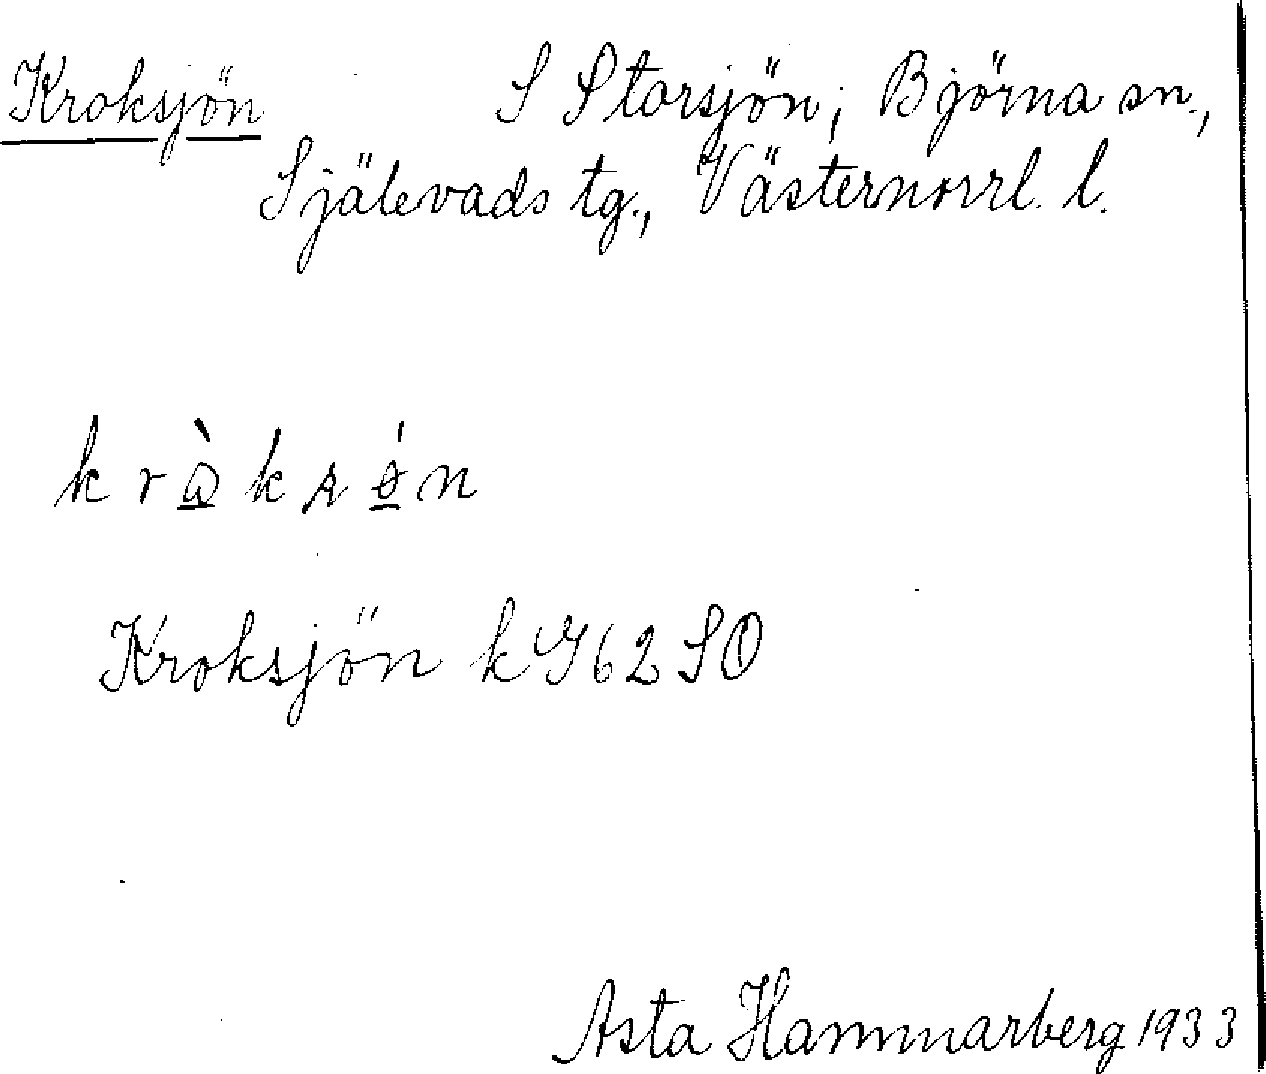 Kroksjön S Storsjön; Björna sn.,
Själevads tg., Västernorrl. l.
kràksǿn
Kroksjön kG62SO
Asta Hammarberg 1933